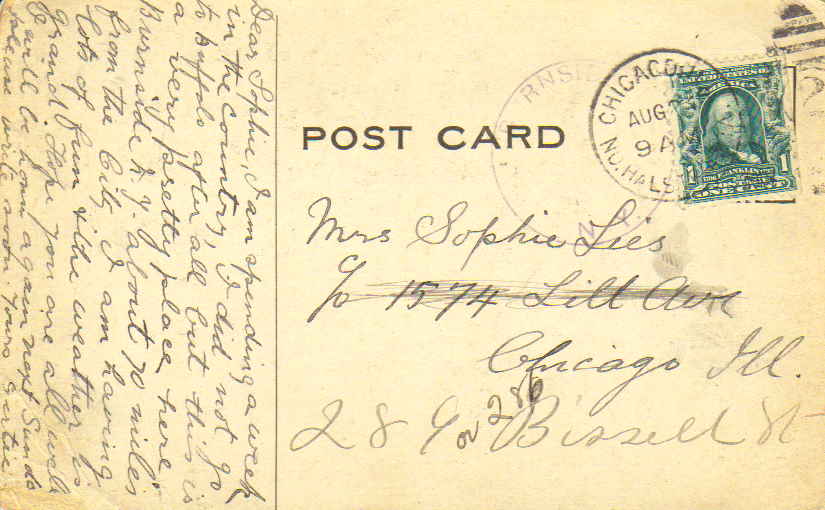 Dear Sophie, I am spending a week
in the country, I did not go
to buffalo after all but this is
a very pretty place here
Burnside N.Y. about 70 miles
from the City I am having
lots of fun & the weather is
grand. Hope you are all well
will be home again next Sunda
please write soon. Yours
POST CARD
RNSI
N.Y.
CHICAGO, ILL
AUG
9 A
NO. HALS
UNITED STATES OF
AMERICA
FRANKLIN
1 1
ONE CENT
Mrs Sophie Lies
c/o 1574 Lill Ave
Chicago Ill.
289 or 286 Bissell St